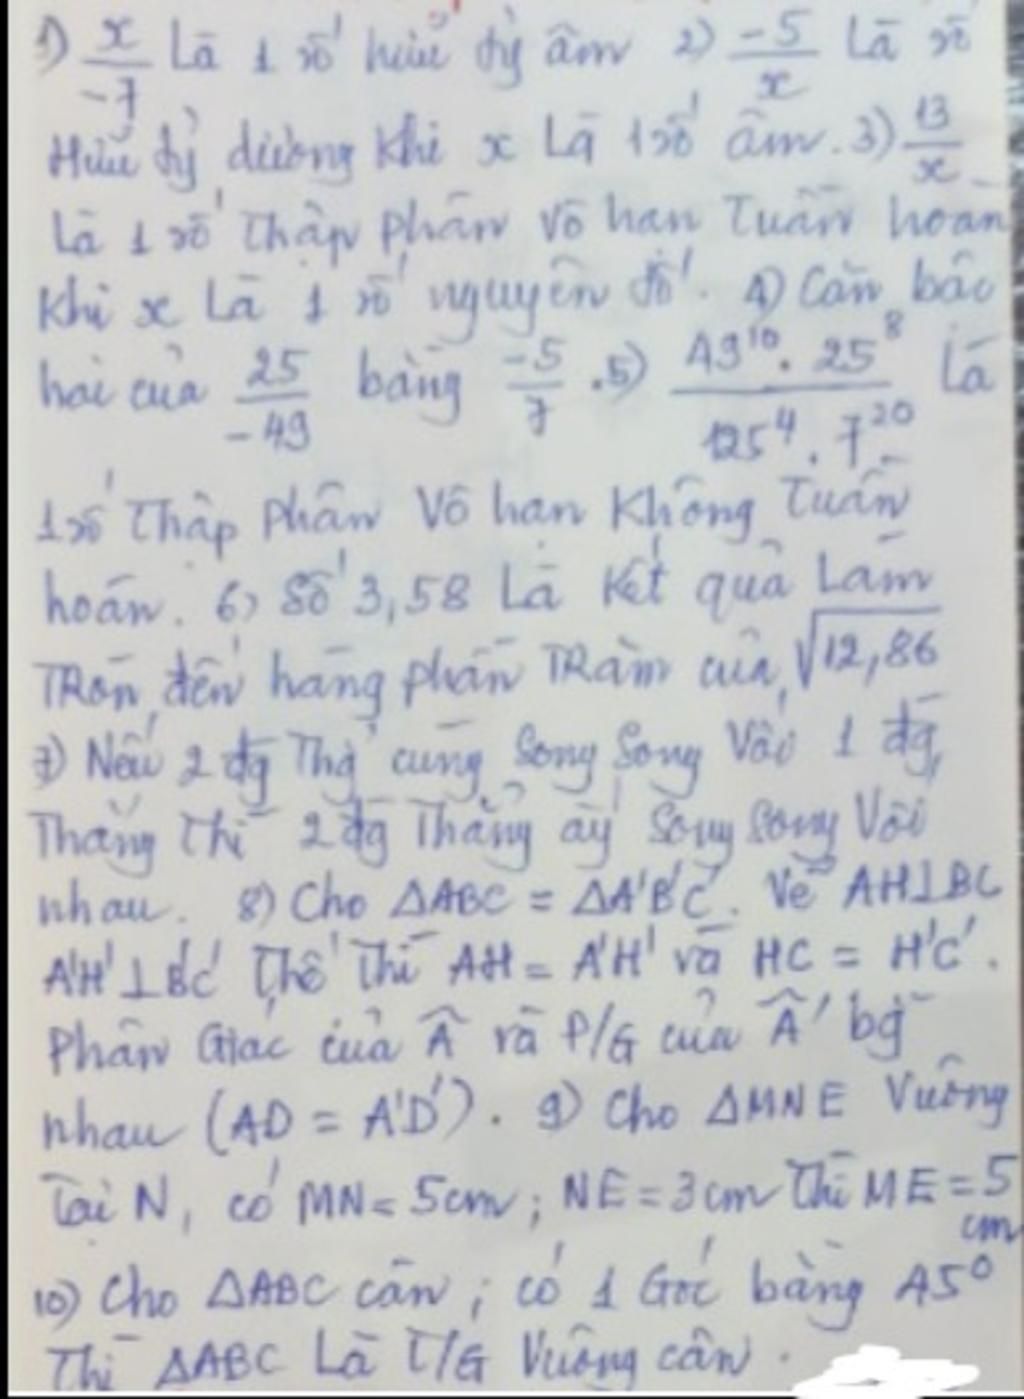 1) x/-7 Là 1 số hữu tỷ âm 2) -5/x Là số
Hữu tỷ dương khi x Là 1 số âm. 3) 13/x
Là 1 số Thập phân vô hạn Tuần hoàn
Khi x Là 1 số nguyên tố. 4) Căn bậc
hai của 25/-49 bằng -5/7 . 5) 49^10 . 25^8 / 125^4 . 7^20 Là
1 số Thập phân Vô hạn Không Tuần
hoàn. 6) Số 3,58 Là Kết quả Làm
TRòn đến hàng phần TRăm của √12,86
7) Nếu 2 đg Thg cùng Song Song Với 1 đg,
Thẳng Thì 2 đg Thẳng ấy Song Song Với
nhau. 8) Cho ΔABC = ΔA'B'C'. Vẽ AH⊥BC
A'H'⊥B'C' Thế Thì AH = A'H' và HC = H'C'.
Phân Giác của Â và P/G của Â' bg
nhau (AD = A'D'). 9) Cho ΔMNE Vuông
Tại N, có MN = 5cm; NE = 3cm Thì ME = 5
cm
10) Cho ΔABC cân; có 1 Góc bằng 45°
Thì ΔABC Là T/G Vuông cân.